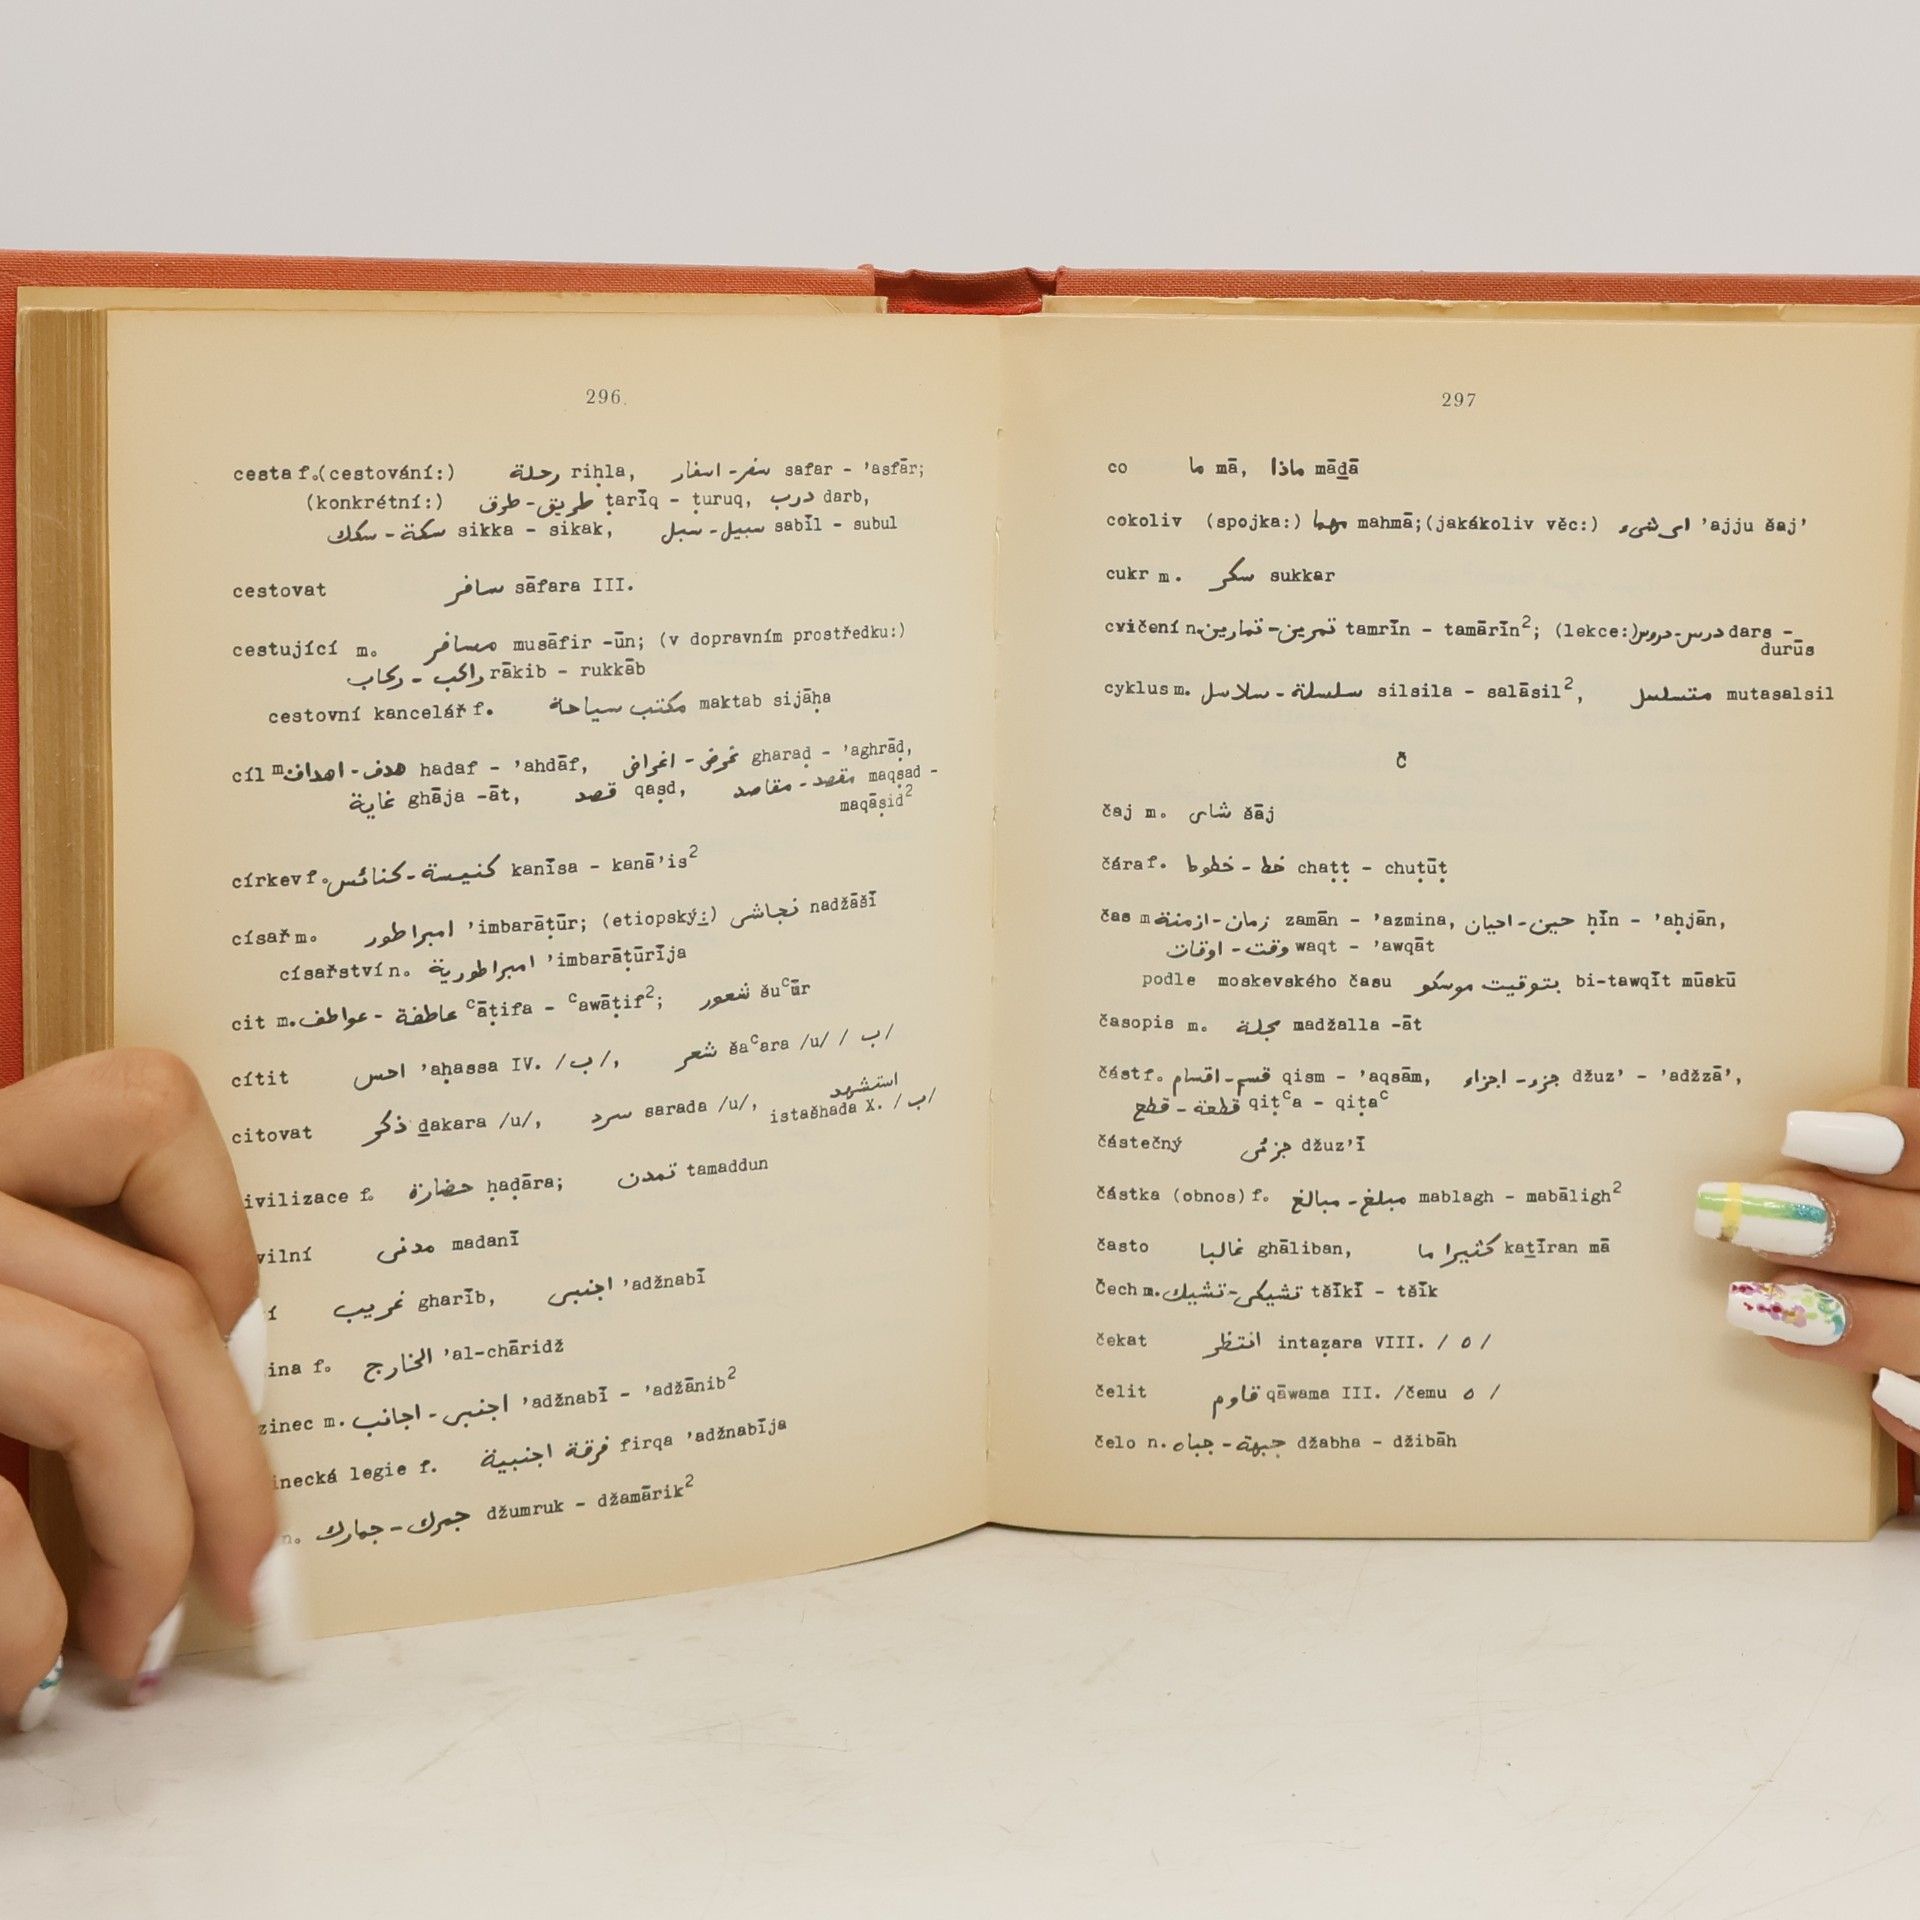 296
cesta f.(cestování:) رحلة riḥla, سفر - اسفار safar - 'asfār;
(konkrétní:) طريق - طرق ṭarīq - ṭuruq, درب darb,
سكة - سكك sikka - sikak, سبيل - سبل sabīl - subul
cestovat سافر sāfara III.
cestující m. مسافر musāfir -ūn; (v dopravním prostředku:)
راكب - ركاب rākib - rukkāb
cestovní kancelář f. مكتب سياحة maktab sijāḥa
cíl m هدف - اهداف hadaf - 'ahdāf, غرض - اغراض gharaḍ - 'aghrāḍ,
غاية ghāja -āt, قصد qaṣd, مقصد - مقاصد maqṣad -
maqāṣid²
církev f. كنيسة - كنائس kanīsa - kanā'is²
císař m. امبراطور 'imbarāṭūr; (etiopský:) نجاشى nadžāšī
císařství n. امبراطورية 'imbarāṭūrīja
cit m. عاطفة - عواطف ᶜāṭifa - ᶜawāṭif²; شعور šuᶜūr
cítit احس 'aḥassa IV. /ب/, شعر šaᶜara /u/ / ب/
استشهد
citovat ذكر ḏakara /u/, سرد sarada /u/, istašhada X. /ب/
ivilizace f. حضارة ḥaḍāra; تمدن tamaddun
vilní مدنى madanī
í غريب gharīb, اجنبى 'adžnabī
ina f. الخارج 'al-chāridž
zinec m. اجنبى - اجانب 'adžnabī - 'adžānib²
inecká legie f. فرقة اجنبية firqa 'adžnabīja
n. جمرك - جمارك džumruk - džamārik²
297
co ما mā, ماذا māḏā
cokoliv (spojka:) مهما mahmā;(jakákoliv věc:) اى شىء 'ajju šaj'
cukr m. سكر sukkar
cvičení n. تمرين - تمارين tamrīn - tamārīn²; (lekce:) درس - دروس dars -
durūs
cyklus m. سلسلة - سلاسل silsila - salāsil², متسلسل mutasalsil
č
čaj m. شاى šāj
čára f. خط - خطوط chaṭṭ - chuṭūṭ
čas m زمان - ازمنة zamān - 'azmina, حين - احيان ḥīn - 'aḥjān,
وقت - اوقات waqt - 'awqāt
podle moskevského času بتوقيت موسكو bi-tawqīt mūskū
časopis m. مجلة madžalla -āt
část f. قسم - اقسام qism - 'aqsām, جزء - اجزاء džuz' - 'adžzā',
قطعة - قطع qiṭᶜa - qiṭaᶜ
částečný جزئى džuz'ī
částka (obnos) f. مبلغ - مبالغ mablagh - mabāligh²
často غالبا ghāliban, كثيرا ما kaṯīran mā
Čech m. تشيكى - تشيك tšīkī - tšīk
čekat انتظر intaẓara VIII. / ه /
čelit قاوم qāwama III. /čemu ه /
čelo n. جبهة - جباه džabha - džibāh